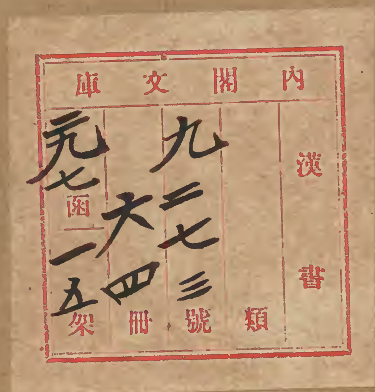 內閣文庫
漢書
類
九二七三號
六四冊
二九七函
一五架